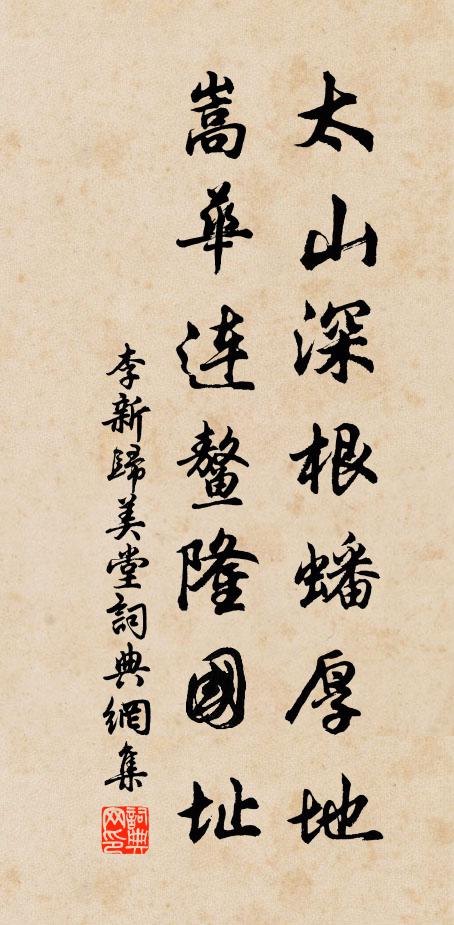 太山深根蟠厚地
嵩華連鼇隆國址
李新歸美堂詞典網集
詞典
网印